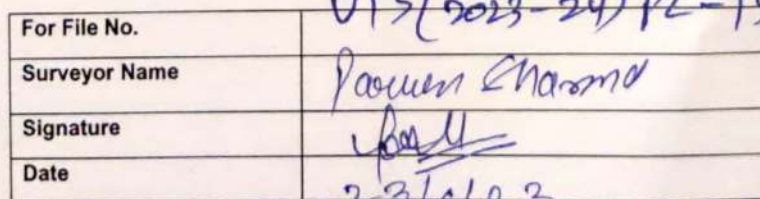 For File No. VIS(2023-24) PL-
Surveyor Name Parveen Sharma
Signature
Date